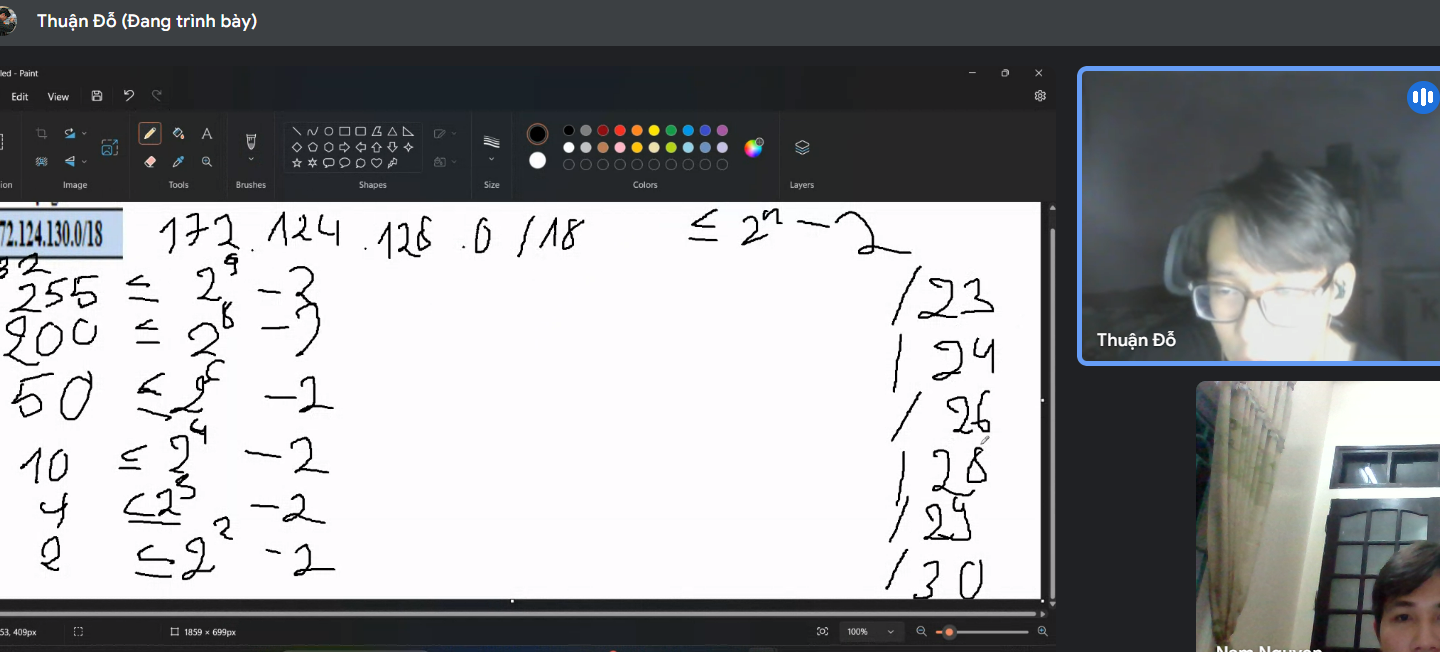 Thuận Đỗ (Đang trình bày)
led - Paint
Edit View
ion Image Tools Brushes Shapes Size Colors Layers
72.124.130.0/18 172.124.128.0/18 ≤ 2ⁿ - 2
32
255 ≤ 2⁹ - 2 /23
200 ≤ 2⁸ - 2 /24
50 ≤ 2⁶ - 2 /26
10 ≤ 2⁴ - 2 /28
4 ≤ 2³ - 2 /29
2 ≤ 2² - 2 /30
Thuận Đỗ
53, 409px 1859 × 699px 100%
Nam Nguyen